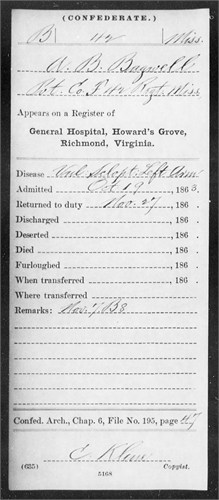 (CONFEDERATE.)
B 42 Miss.
A. B. Bagwell
Pvt. Co F 42 Regt. Miss
Appears on a Register of
General Hospital, Howard's Grove,
Richmond, Virginia.
Disease Vul Sclopt. Left Arm
Admitted Oct. 19, 1863.
Returned to duty Nov. 27, 186 .
Discharged , 186 .
Deserted , 186 .
Died , 186 .
Furloughed , 186 .
When transferred , 186 .
Where transferred
Remarks: Nov.
Confed. Arch., Chap. 6, File No. 195, page 47
E. Kline
(635) Copyist.
5168